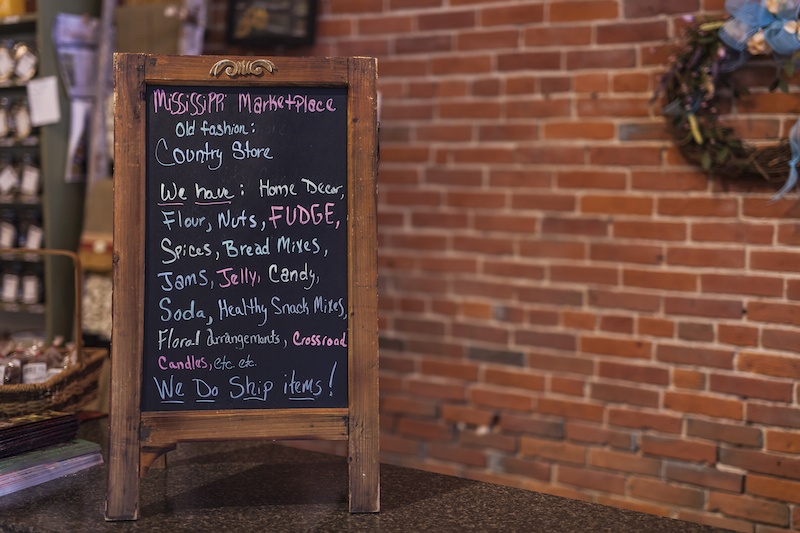 Mississippi Marketplace
Old fashion:
Country Store
We have: Home Decor,
Flour, Nuts, FUDGE,
Spices, Bread Mixes,
Jams, Jelly, Candy,
Soda, Healthy Snack Mixes,
Floral arrangements, Crossroad
Candles, etc. etc.
We Do Ship items!